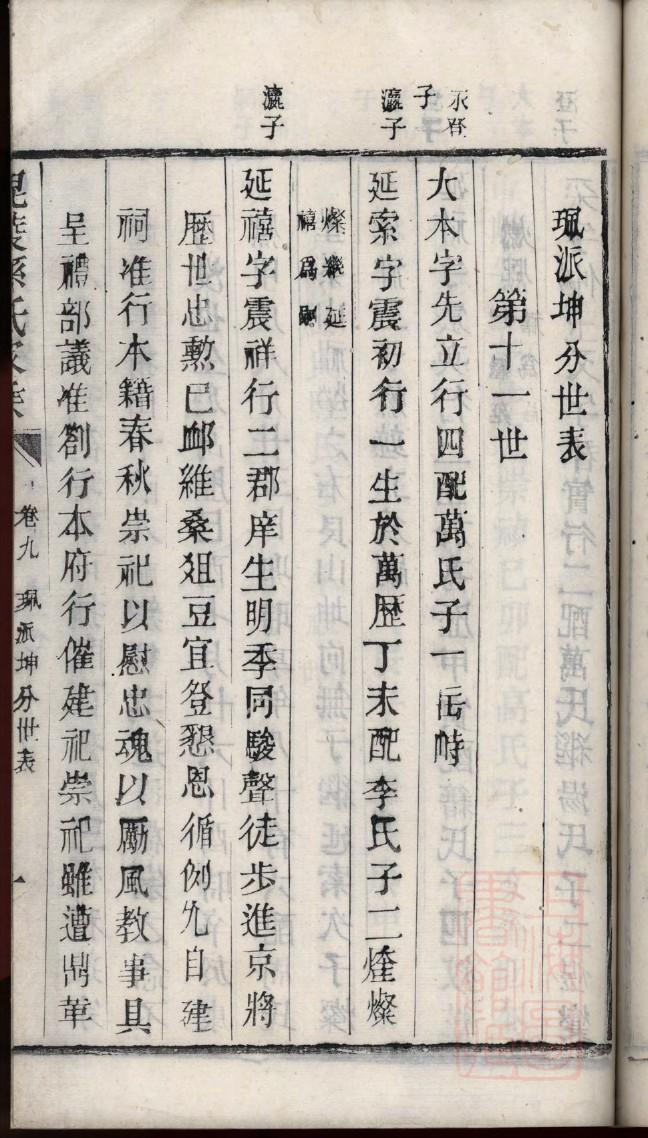 珮派坤分世表
第十一世
永登子
大本字先立行四配萬氏子一岳時
瀛子
延索字震初行一生於萬歷丁未配李氏子二煃燦
燦繼延
禧爲嗣
瀛子
延禧字震祥行二郡庠生明季同駿聲徒步進京將
歷世忠勲已邺維桑爼豆宜登懇恩循例允自建
祠准行本籍春秋崇祀以慰忠魂以厲風教事具
呈禮部議准劄行本府行催建祀崇祀雖遭鼎革
毘陵孫氏家乗
卷九
珮派坤分世表
一